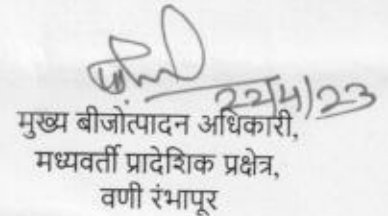 22/4/23
मुख्य बीजोत्पादन अधिकारी,
मध्यवर्ती प्रादेशिक प्रक्षेत्र,
वणी रंभापूर